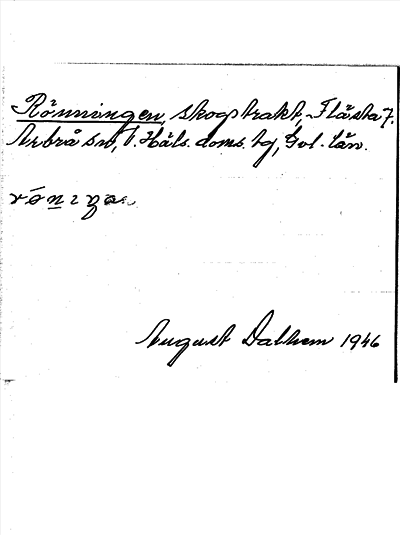 Rönningen, skogstrakt, Flästa 7.
Arbrå sn, V. Häls. doms. tg, Gvl. län.
August Dalhem 1946